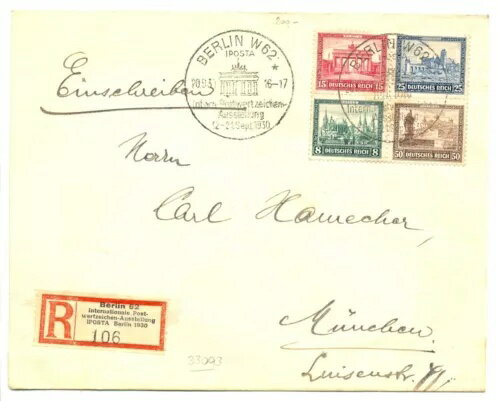 200.-
BERLIN W62
IPOSTA
20.9.30 16-17
Postwertzeichen-
Ausstellung
12-21. Sept. 1930
BERLIN W62
15 15
DEUTSCHES REICH
25 25
DEUTSCHES REICH
8 8
DEUTSCHES REICH
50 50
DEUTSCHES REICH
Einschreiben
Herrn
Carl Hamecher,
R
Berlin 62
Internationale Post-
wertzeichen-Ausstellung
IPOSTA Berlin 1930
106
München
Luisenstr.
33093